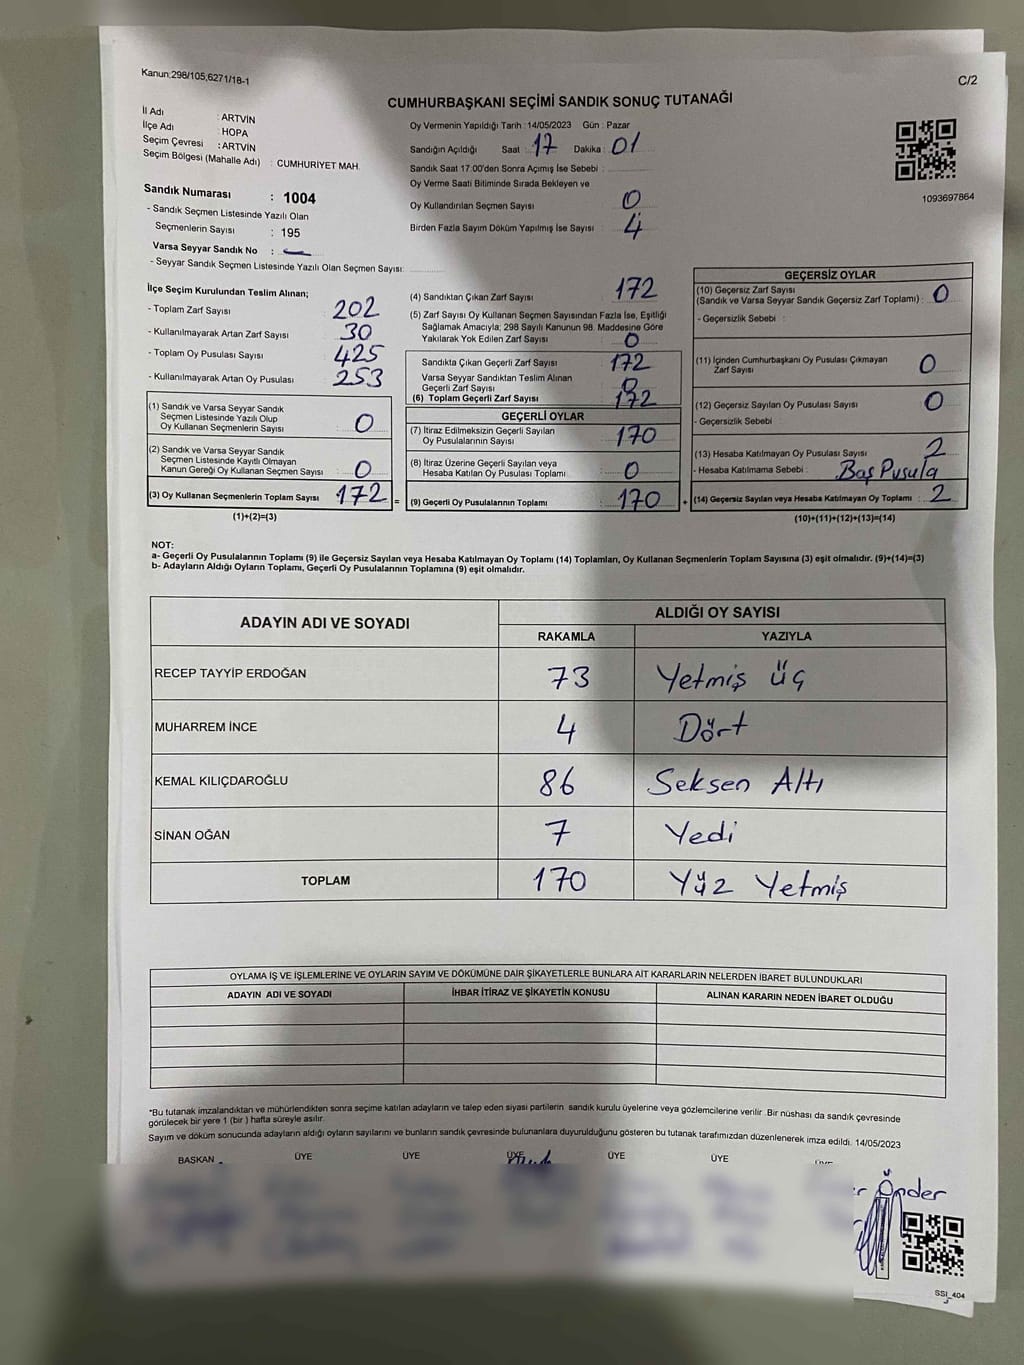 Kanun:298/105,6271/18-1
C/2
CUMHURBAŞKANI SEÇİMİ SANDIK SONUÇ TUTANAĞI
İl Adı : ARTVİN
İlçe Adı : HOPA
Seçim Çevresi : ARTVİN
Seçim Bölgesi (Mahalle Adı) : CUMHURİYET MAH.
Sandık Numarası : 1004
- Sandık Seçmen Listesinde Yazılı Olan
Seçmenlerin Sayısı : 195
Varsa Seyyar Sandık No :
- Seyyar Sandık Seçmen Listesinde Yazılı Olan Seçmen Sayısı:
Oy Vermenin Yapıldığı Tarih : 14/05/2023 Gün : Pazar
Sandığın Açıldığı Saat : 17 Dakika : 01
Sandık Saat 17:00'den Sonra Açımış İse Sebebi :
Oy Verme Saati Bitiminde Sırada Bekleyen ve
Oy Kullandırılan Seçmen Sayısı 0
Birden Fazla Sayım Döküm Yapılmış İse Sayısı 4
1093697864
İlçe Seçim Kurulundan Teslim Alınan;
- Toplam Zarf Sayısı 202
- Kullanılmayarak Artan Zarf Sayısı 30
- Toplam Oy Pusulası Sayısı 425
- Kullanılmayarak Artan Oy Pusulası 253
(1) Sandık ve Varsa Seyyar Sandık
Seçmen Listesinde Yazılı Olup
Oy Kullanan Seçmenlerin Sayısı : 0
(2) Sandık ve Varsa Seyyar Sandık
Seçmen Listesinde Kayıtlı Olmayan
Kanun Gereği Oy Kullanan Seçmen Sayısı : 0
(3) Oy Kullanan Seçmenlerin Toplam Sayısı : 172 =
(1)+(2)=(3)
(4) Sandıktan Çıkan Zarf Sayısı 172
(5) Zarf Sayısı Oy Kullanan Seçmen Sayısından Fazla İse, Eşitliği
Sağlamak Amacıyla; 298 Sayılı Kanunun 98. Maddesine Göre
Yakılarak Yok Edilen Zarf Sayısı 0
Sandıkta Çıkan Geçerli Zarf Sayısı 172
Varsa Seyyar Sandıktan Teslim Alınan
Geçerli Zarf Sayısı 0
(6) Toplam Geçerli Zarf Sayısı 172
GEÇERLİ OYLAR
(7) İtiraz Edilmeksizin Geçerli Sayılan
Oy Pusulalarının Sayısı 170
(8) İtiraz Üzerine Geçerli Sayılan veya
Hesaba Katılan Oy Pusulası Toplamı 0
(9) Geçerli Oy Pusulalarının Toplamı 170 +
GEÇERSİZ OYLAR
(10) Geçersiz Zarf Sayısı
(Sandık ve Varsa Seyyar Sandık Geçersiz Zarf Toplamı) : 0
- Geçersizlik Sebebi :
(11) İçinden Cumhurbaşkanı Oy Pusulası Çıkmayan
Zarf Sayısı 0
(12) Geçersiz Sayılan Oy Pusulası Sayısı 0
- Geçersizlik Sebebi :
(13) Hesaba Katılmayan Oy Pusulası Sayısı 2
- Hesaba Katılmama Sebebi : Boş Pusula
(14) Geçersiz Sayılan veya Hesaba Katılmayan Oy Toplamı : 2
(10)+(11)+(12)+(13)=(14)
NOT:
a- Geçerli Oy Pusulalarının Toplamı (9) ile Geçersiz Sayılan veya Hesaba Katılmayan Oy Toplamı (14) Toplamları, Oy Kullanan Seçmenlerin Toplam Sayısına (3) eşit olmalıdır. (9)+(14)=(3)
b- Adayların Aldığı Oyların Toplamı, Geçerli Oy Pusulalarının Toplamına (9) eşit olmalıdır.
ADAYIN ADI VE SOYADI
ALDIĞI OY SAYISI
RAKAMLA YAZIYLA
RECEP TAYYİP ERDOĞAN 73 Yetmiş üç
MUHARREM İNCE 4 Dört
KEMAL KILIÇDAROĞLU 86 Seksen Altı
SİNAN OĞAN 7 Yedi
TOPLAM 170 Yüz Yetmiş
OYLAMA İŞ VE İŞLEMLERİNE VE OYLARIN SAYIM VE DÖKÜMÜNE DAİR ŞİKAYETLERLE BUNLARA AİT KARARLARIN NELERDEN İBARET BULUNDUKLARI
ADAYIN ADI VE SOYADI İHBAR İTİRAZ VE ŞİKAYETİN KONUSU ALINAN KARARIN NEDEN İBARET OLDUĞU
*Bu tutanak imzalandıktan ve mühürlendikten sonra seçime katılan adayların ve talep eden siyasi partilerin sandık kurulu üyelerine veya gözlemcilerine verilir. Bir nüshası da sandık çevresinde
görülecek bir yere 1 (bir ) hafta süreyle asılır.
Sayım ve döküm sonucunda adayların aldığı oyların sayılarını ve bunların sandık çevresinde bulunanlara duyurulduğunu gösteren bu tutanak tarafımızdan düzenlenerek imza edildi. 14/05/2023
BAŞKAN ÜYE ÜYE ÜYE ÜYE ÜYE
Önder
SSI_404